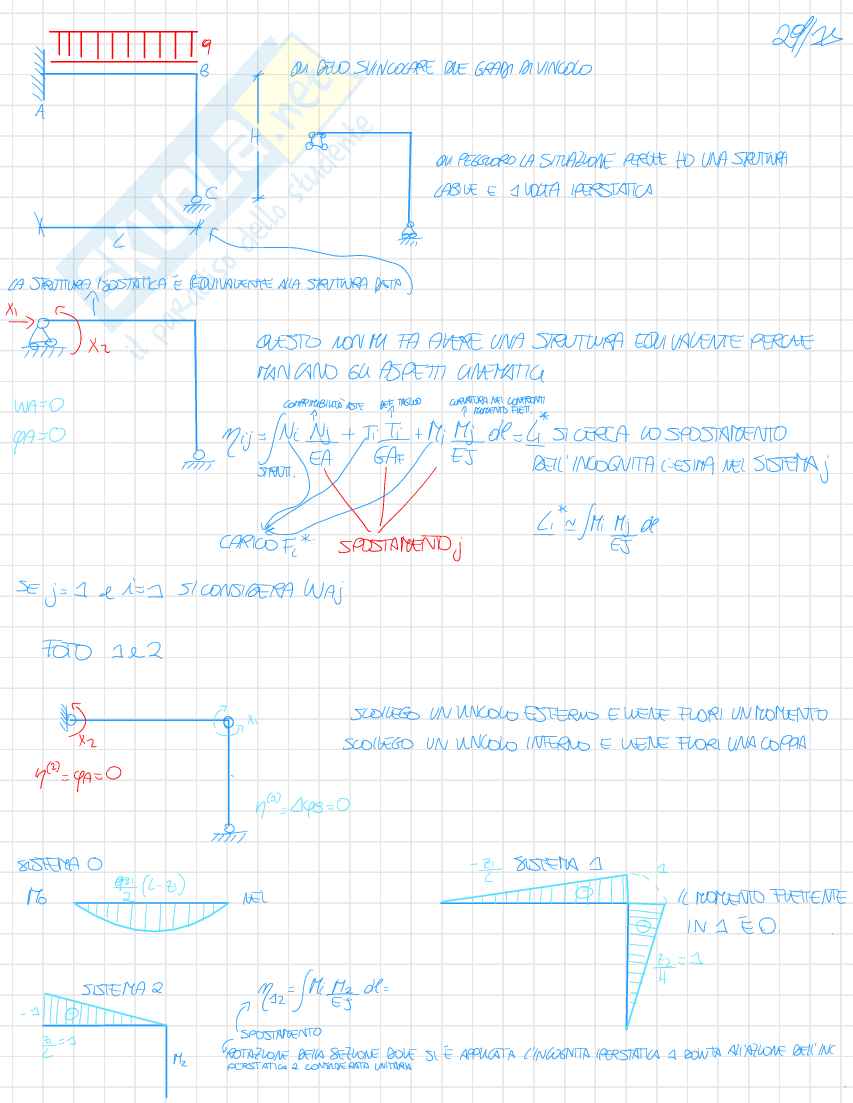 29/11
q
B
A
H
C
L
QUI DEVO SVINCOLARE DUE GRADI DI VINCOLO
QUI PEGGIORO LA SITUAZIONE PERCHÈ HO UNA STRUTTURA
LABILE E 1 VOLTA IPERSTATICA
SKUOLA.net
il paradiso dello studente
LA STRUTTURA ISOSTATICA È EQUIVALENTE ALLA STRUTTURA DATA
X1
X2
WA=0
φA=0
QUESTO NON MI FA AVERE UNA STRUTTURA EQUIVALENTE PERCHÈ
MANCANO GLI ASPETTI CINEMATICI
COMPRIMIBILITÀ ASTE DEF. TAGLIO CURVATURA NEI CONFRONTI MOMENTO FLETT.
ηij = ∫ Ni Nj/EA + Ti Tj/GAF + Mi Mj/EJ dl = Li* SI CERCA LO SPOSTAMENTO
STRUTT.
DELL'INCOGNITA i-ESIMA NEL SISTEMA j
CARICO Fi* SPOSTAMENTO j
Li* ≈ ∫ Mi Mj/EJ dl
SE j=1 e i=1 SI CONSIDERA WAj
FOTO 1 e 2
X2
X1
η(2)=φA=0
η(1)=ΔφB=0
SCOLLEGO UN VINCOLO ESTERNO E VIENE FUORI UN MOMENTO
SCOLLEGO UN VINCOLO INTERNO E VIENE FUORI UNA COPPIA
SISTEMA 0
M0
qz/2 (L-z)
NEL
SISTEMA 1
-z/L
1
IL MOMENTO FLETTENTE
IN 1 È 0
z/H = 1
SISTEMA 2
-1
z/L = 1
M2
η12 = ∫ Mi M2/EJ dl =
SPOSTAMENTO
ROTAZIONE DELLA SEZIONE DOVE SI È APPLICATA L'INCOGNITA IPERSTATICA 1 DOVUTA ALL'AZIONE DELL'INC
IPERSTATICA 2 CONSIDERATA UNITARIA